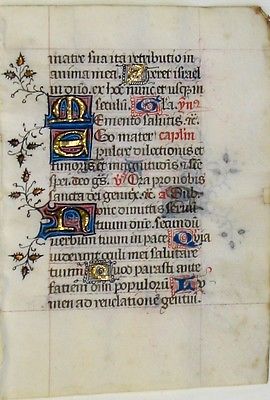 matre sua ita retributio in
anima mea. Speret israel
in dno. ex hoc nunc et usqz in
seculū. Gła. ymz
Memento salutis. ꝛc.
Ego mater caplm
pulcre dilectionis et
timoris et magnitudīs et sctē
spei. deo gs. ℣ Ora pro nobis
sancta dei genitx. ꝛc. a Sub.
Nunc dimittis servū
tuum dne. secundū
verbum tuum in pace. Quia
viderunt oculi mei salutare
tuum. Quod parasti ante
faciem oīm populorū. Lu
men ad revelatione gentiū.